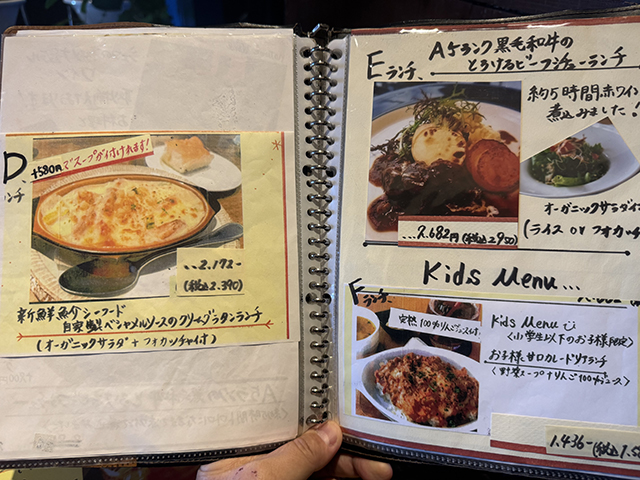 D
ランチ
+580円でスープが付けれます!
...2.172-
(税込2.390)
新鮮魚介シーフード
自家製ベシャメルソースのクリームグラタンランチ
(オーガニックサラダ+フォカッチャ付)
Eランチ、
A5ランク黒毛和牛の
とろけるビーフシチューランチ
約5時間赤ワイン
煮込みました!
オーガニックサラダ付
(ライス or フォカッチャ
...2.682円(税込2950)
Kids Menu...
Fランチ、
完熟100%りんごジュース付
Kids Menu
<小学生以下のお子様限定>
お子様甘口カレードリアランチ
<野菜スープ+りんご100%ジュース>
1.436-(税込1.5